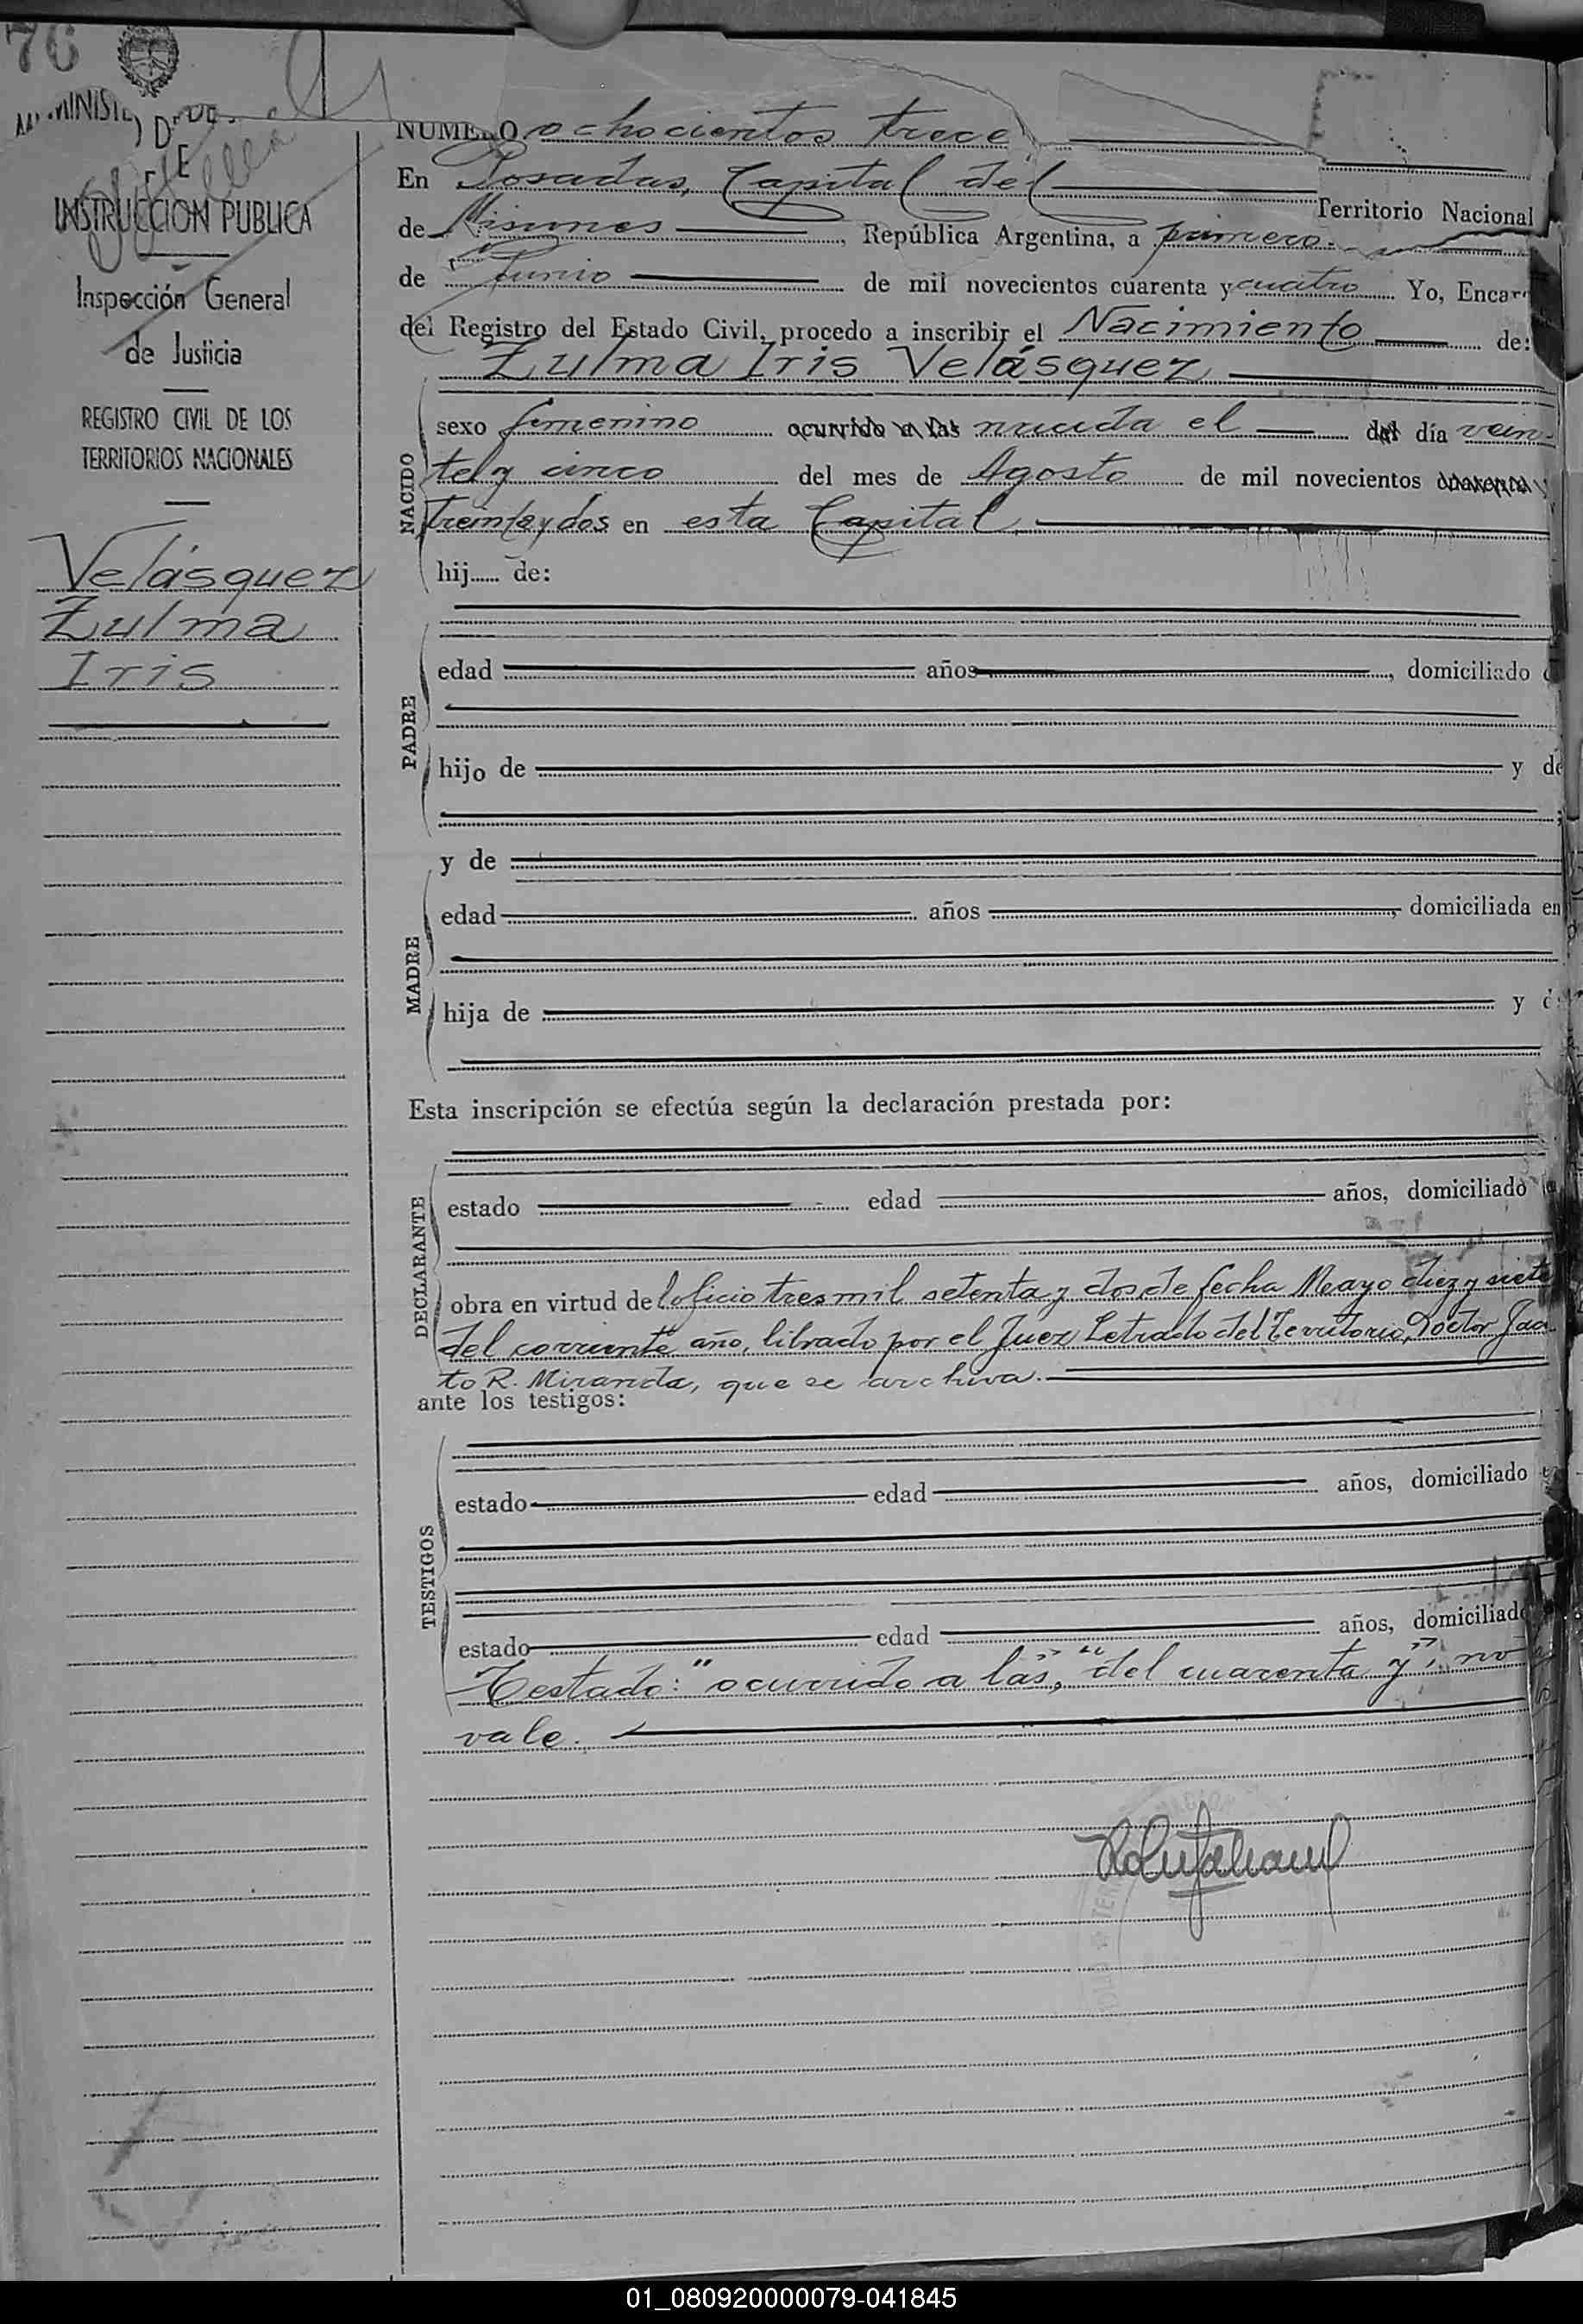 76
MINIST
DE
INSTRUCCION PUBLICA
Inspección General
de Justicia
REGISTRO CIVIL DE LOS
TERRITORIOS NACIONALES
Velásquez
Zulma
Iris
NUMERO ochocientos trece
En Posadas, Capital del Territorio Nacional
de Misiones, República Argentina, a primero
de Junio de mil novecientos cuarenta y cuatro Yo, Encar
del Registro del Estado Civil, procedo a inscribir el Nacimiento de:
Zulma Iris Velásquez
NACIDO
sexo femenino ocurrido a las nacida el del día vein-
te y cinco del mes de Agosto de mil novecientos cuarenta y
treinta y dos en esta Capital
hij...... de:
PADRE
edad años, domiciliado
hijo de y de
y de
MADRE
edad años domiciliada en
hija de y d
Esta inscripción se efectúa según la declaración prestada por:
DECLARANTE
estado edad años, domiciliado
obra en virtud del oficio tres mil setenta y dos de fecha Mayo diez y siete
del corriente año, librado por el Juez Letrado del Territorio, Doctor Jacin
to R. Miranda, que se archiva.
ante los testigos:
TESTIGOS
estado edad años, domiciliado
estado edad años, domiciliado
Testado: "ocurrido a las", "del cuarenta y"; no
vale.
01_080920000079-041845